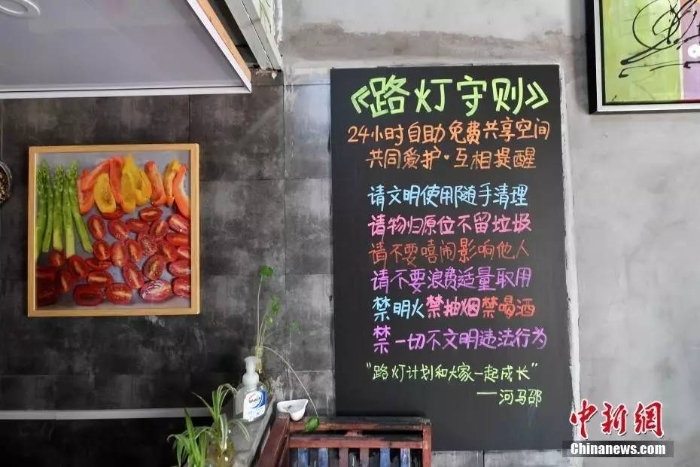 《路灯守则》
24小时自助免费共享空间
共同爱护·互相提醒
请文明使用随手清理
请物归原位不留垃圾
请不要嘻闹影响他人
请不要浪费适量取用
禁明火禁抽烟禁喝酒
禁一切不文明违法行为
“路灯计划和大家一起成长”
——河马邵
中新网
Chinanews.com